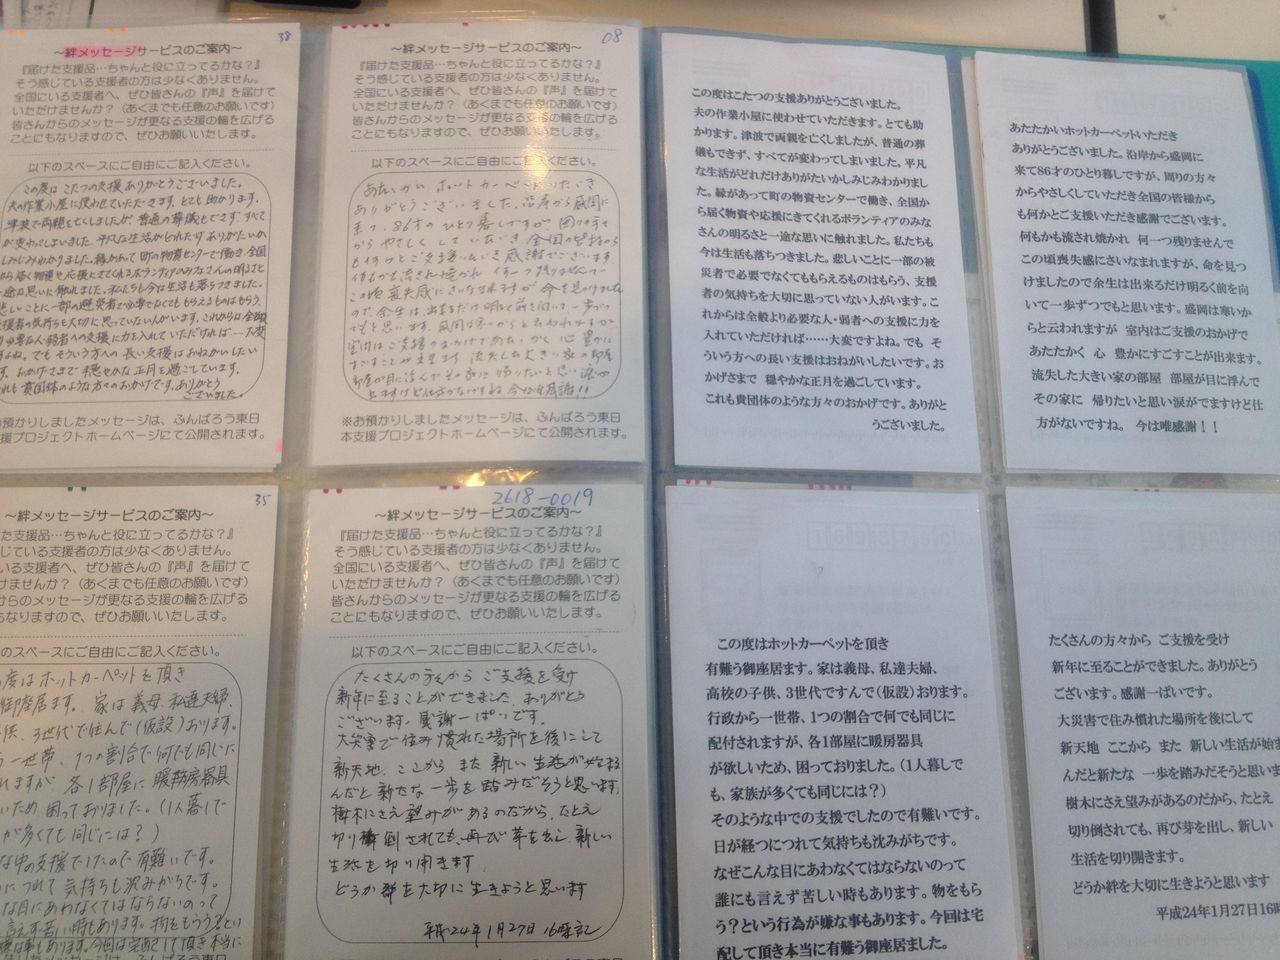 38
～絆メッセージサービスのご案内～
『届けた支援品…ちゃんと役に立ってるかな？』
そう感じている支援者の方は少なくありません。
全国にいる支援者へ、ぜひ皆さんの『声』を届けて
いただけませんか？（あくまでも任意のお願いです）
皆さんからのメッセージが更なる支援の輪を広げる
ことにもなりますので、ぜひお願いいたします。
以下のスペースにご自由にご記入ください。
この度はこたつの支援ありがとうございました。
夫の作業小屋に使わせていただきます。とても助かります。
津波で両親を亡くしましたが、普通の葬儀もできず、すべて
が変わってしまいました。平凡な生活がどれだけありがたいか
しみじみわかりました。縁があって町の物資センターで働き、全国
から届く物資や応援にきてくれるボランティアのみなさんの明るさと
一途な思いに触れました。私たちも今は生活も落ちつきました。
悲しいことに一部の被災者で必要でなくてももらえるものはもらう、
支援者の気持ちを大切に思っていない人がいます。これからは全般
より必要な人・弱者への支援に力を入れていただければ……大変
ですよね。でもそういう方への長い支援はおねがいしたい
です。おかげさまで穏やかな正月を過ごしています。
これも貴団体のような方々のおかげです。ありがとう
ございました。
お預かりしましたメッセージは、ふんばろう東日
支援プロジェクトホームページにて公開されます。
08
～絆メッセージサービスのご案内～
『届けた支援品…ちゃんと役に立ってるかな？』
そう感じている支援者の方は少なくありません。
全国にいる支援者へ、ぜひ皆さんの『声』を届けて
いただけませんか？（あくまでも任意のお願いです）
皆さんからのメッセージが更なる支援の輪を広げる
ことにもなりますので、ぜひお願いいたします。
以下のスペースにご自由にご記入ください。
あたたかい ホットカーペットいただき
ありがとうございました。沿岸から盛岡に
来て86才のひとり暮しですが、周りの方々
からやさしくしていただき 全国の皆様から
も何かとご支援いただき感謝でございます。
何もかも流され焼かれ 何一つ残りませんで
この頃喪失感にさいなまれますが 命を見つけました
ので、余生は出来るだけ明るく前を向いて一歩づつ
でもと思います。盛岡は寒いからと云われますが
室内はご支援のおかげであたたかく 心 豊かに
すごすことが出来ます 流失した大きい家の部屋
部屋が目に浮んでその家に帰りたいと思い 涙が
出ますけど仕方がないですね 今は唯感謝！！
※お預かりしましたメッセージは、ふんばろう東日
本支援プロジェクトホームページにて公開されます。
この度はこたつの支援ありがとうございました。
夫の作業小屋に使わせていただきます。とても助
かります。津波で両親を亡くしましたが、普通の葬
儀もできず、すべてが変わってしまいました。平凡
な生活がどれだけありがたいかしみじみわかりまし
た。縁があって町の物資センターで働き、全国か
ら届く物資や応援にきてくれるボランティアのみな
さんの明るさと一途な思いに触れました。私たちも
今は生活も落ちつきました。悲しいことに一部の被
災者で必要でなくてももらえるものはもらう、支援
者の気持ちを大切に思っていない人がいます。こ
れからは全般より必要な人・弱者への支援に力を
入れていただければ……大変ですよね。でも そ
ういう方への長い支援はおねがいしたいです。お
かげさまで 穏やかな正月を過ごしています。
これも貴団体のような方々のおかげです。ありがと
うございました。
あたたかいホットカーペットいただき
ありがとうございました。沿岸から盛岡に
来て86才のひとり暮しですが、周りの方々
からやさしくしていただき全国の皆様から
も何かとご支援いただき感謝でございます。
何もかも流され焼かれ 何一つ残りませんで
この頃喪失感にさいなまれますが、命を見つ
けましたので余生は出来るだけ明るく前を向
いて一歩ずつでもと思います。盛岡は寒いか
らと云われますが 室内はご支援のおかげで
あたたかく 心 豊かにすごすことが出来ます。
流失した大きい家の部屋 部屋が目に浮んで
その家に 帰りたいと思い涙がでますけど仕
方がないですね。 今は唯感謝！！
35
～絆メッセージサービスのご案内～
た支援品…ちゃんと役に立ってるかな？』
じている支援者の方は少なくありません。
いる支援者へ、ぜひ皆さんの『声』を届けて
けませんか？（あくまでも任意のお願いです）
からのメッセージが更なる支援の輪を広げる
もなりますので、ぜひお願いいたします。
のスペースにご自由にご記入ください。
の度はホットカーペットを頂き
御座居ます。家は義母、私達夫婦、
供、3世代で住んで（仮設）おります。
一世帯、1つの割合で何でも同じに
れますが 各1部屋に暖房器具
いため 困っておりました。（1人暮しで
が多くても同じには？）
な中の支援でしたので有難いです。
につれて気持ちも沈みがちです。
な目にあわなくてはならないのって
言えず苦しい時もあります。物をもらう？とい
な事もあります。今回は宅配して頂き本当に
2618-0019
～絆メッセージサービスのご案内～
『届けた支援品…ちゃんと役に立ってるかな？』
そう感じている支援者の方は少なくありません。
全国にいる支援者へ、ぜひ皆さんの『声』を届けて
いただけませんか？（あくまでも任意のお願いです）
皆さんからのメッセージが更なる支援の輪を広げる
ことにもなりますので、ぜひお願いいたします。
以下のスペースにご自由にご記入ください。
たくさんの方々から ご支援を受け
新年に至ることができました。ありがとう
ございます。感謝一ぱいです。
大災害で住み慣れた場所を後にして
新天地、ここから また 新しい生活が始まる
んだと新たな一歩を踏みだそうと思います。
樹木にさえ望みがあるのだから、たとえ
切り倒されても、再び芽を出し、新しい
生活を切り開きます。
どうか絆を大切に生きようと思います
平成24年1月27日 16時記
この度はホットカーペットを頂き
有難う御座居ます。家は義母、私達夫婦、
高校の子供、3世代ですんで（仮設）おります。
行政から一世帯、1つの割合で何でも同じに
配付されますが、各1部屋に暖房器具
が欲しいため、困っておりました。（1人暮しで
も、家族が多くても同じには？）
そのような中での支援でしたので有難いです。
日が経つにつれて気持ちも沈みがちです。
なぜこんな目にあわなくてはならないのって
誰にも言えず苦しい時もあります。物をもら
う？という行為が嫌な事もあります。今回は宅
配して頂き本当に有難う御座居ました。
たくさんの方々から ご支援を受け
新年に至ることができました。ありがとう
ございます。感謝一ぱいです。
大災害で住み慣れた場所を後にして
新天地 ここから また 新しい生活が始ま
んだと新たな 一歩を踏みだそうと思いま
樹木にさえ望みがあるのだから、たとえ
切り倒されても、再び芽を出し、新しい
生活を切り開きます。
どうか絆を大切に生きようと思います
平成24年1月27日16時